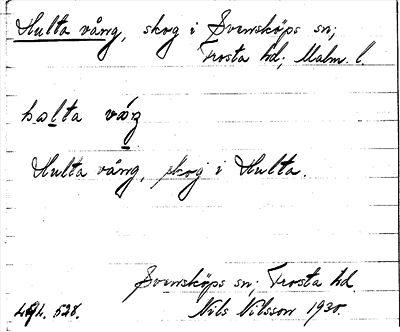 Hulta vång, skog i Svensköps sn;
Frosta hd; Malm. l.
halta váŋ
Hulta vång, skog i Hulta.
Svensköps sn; Frosta hd.
Nils Nilsson 1930.